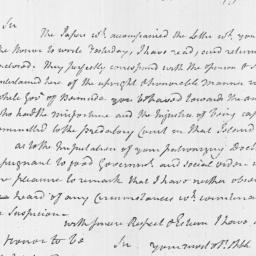 Sir
The Papers wh. accompanied the Letter wh. you
the Honor to write Yesterday, I have read, and return
enclosed. They perfectly correspond with the opinion
entertained here of the upright & honorable manner
while Gov. of you behaved towards the
who had the misfortune and the Injustice of being cap
committed to the predatory Court in that Island
as to the Imputation of your patronizing Doct
repugnant to good Governmt. and social order
pleasure to remark that I have neither obser
heard of any Circumstances wh. countenan
Suspicion.
with sincere Respect & Esteem I have
Honor to be Sir your most ob.